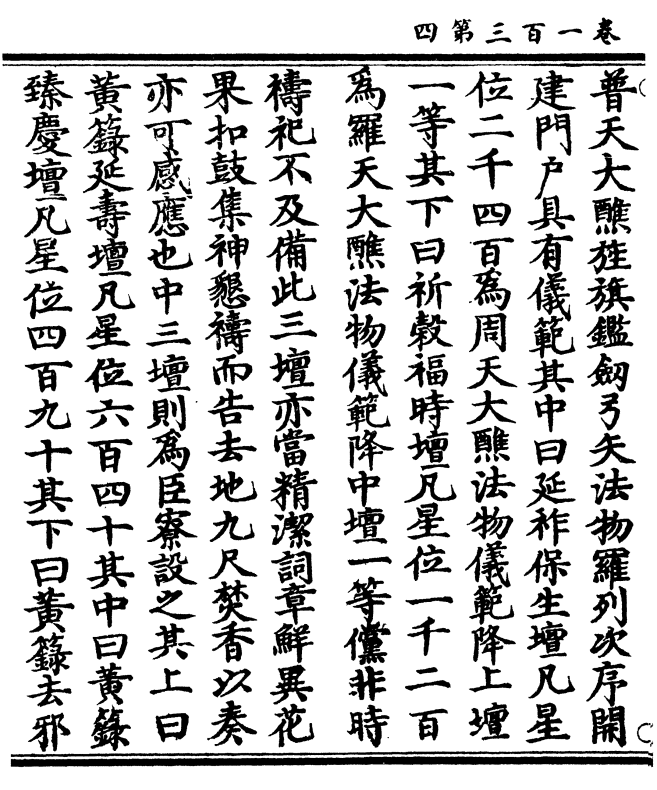 卷一百三第四
普天大醮旌旗鑑劒弓矢法物羅列次序開
建門户具有儀範其中曰延祚保生壇凡星
位二千四百爲周天大醮法物儀範降上壇
一等其下曰祈榖福時壇凡星位一千二百
爲羅天大醮法物儀範降中壇一等儻非時
禱祀不及備此三壇亦當精潔詞章鮮異花
果扣鼓集神懇禱而告去地九尺焚香以奏
亦可感應也中三壇則爲臣寮設之其上曰
黄籙延壽壇凡星位六百四十其中曰黄籙
臻慶壇凡星位四百九十其下曰黄籙去邪